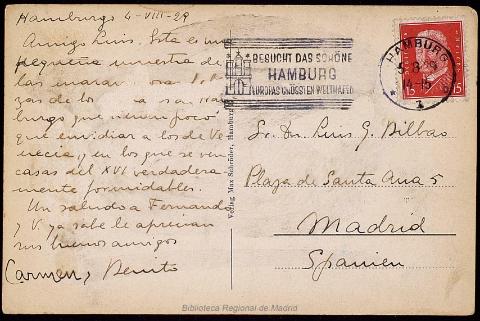 Hamburgo 4-VIII-29
Amigo Luis. Esta es una
pequeña muestra de
las maravillosas
zas de los
burgo que tienen poco
que envidiar a los de Ve
necia, y en los que se ven
casas del XVI verdadera
mente formidables.
Un saludo a Fernando
y V. ya sabe le aprecian
sus buenos amigos
Carmen, Benito
Verlag Max Schröder, Hamburg
BESUCHT DAS SCHÖNE
HAMBURG
EUROPAS GRÖSSTEN WELTHAFEN
HAMBURG
1
15
15
Sr. Dn. Luis G. Bilbao
Plaza de Santa Ana 5
Madrid
Spanien
Biblioteca Regional de Madrid